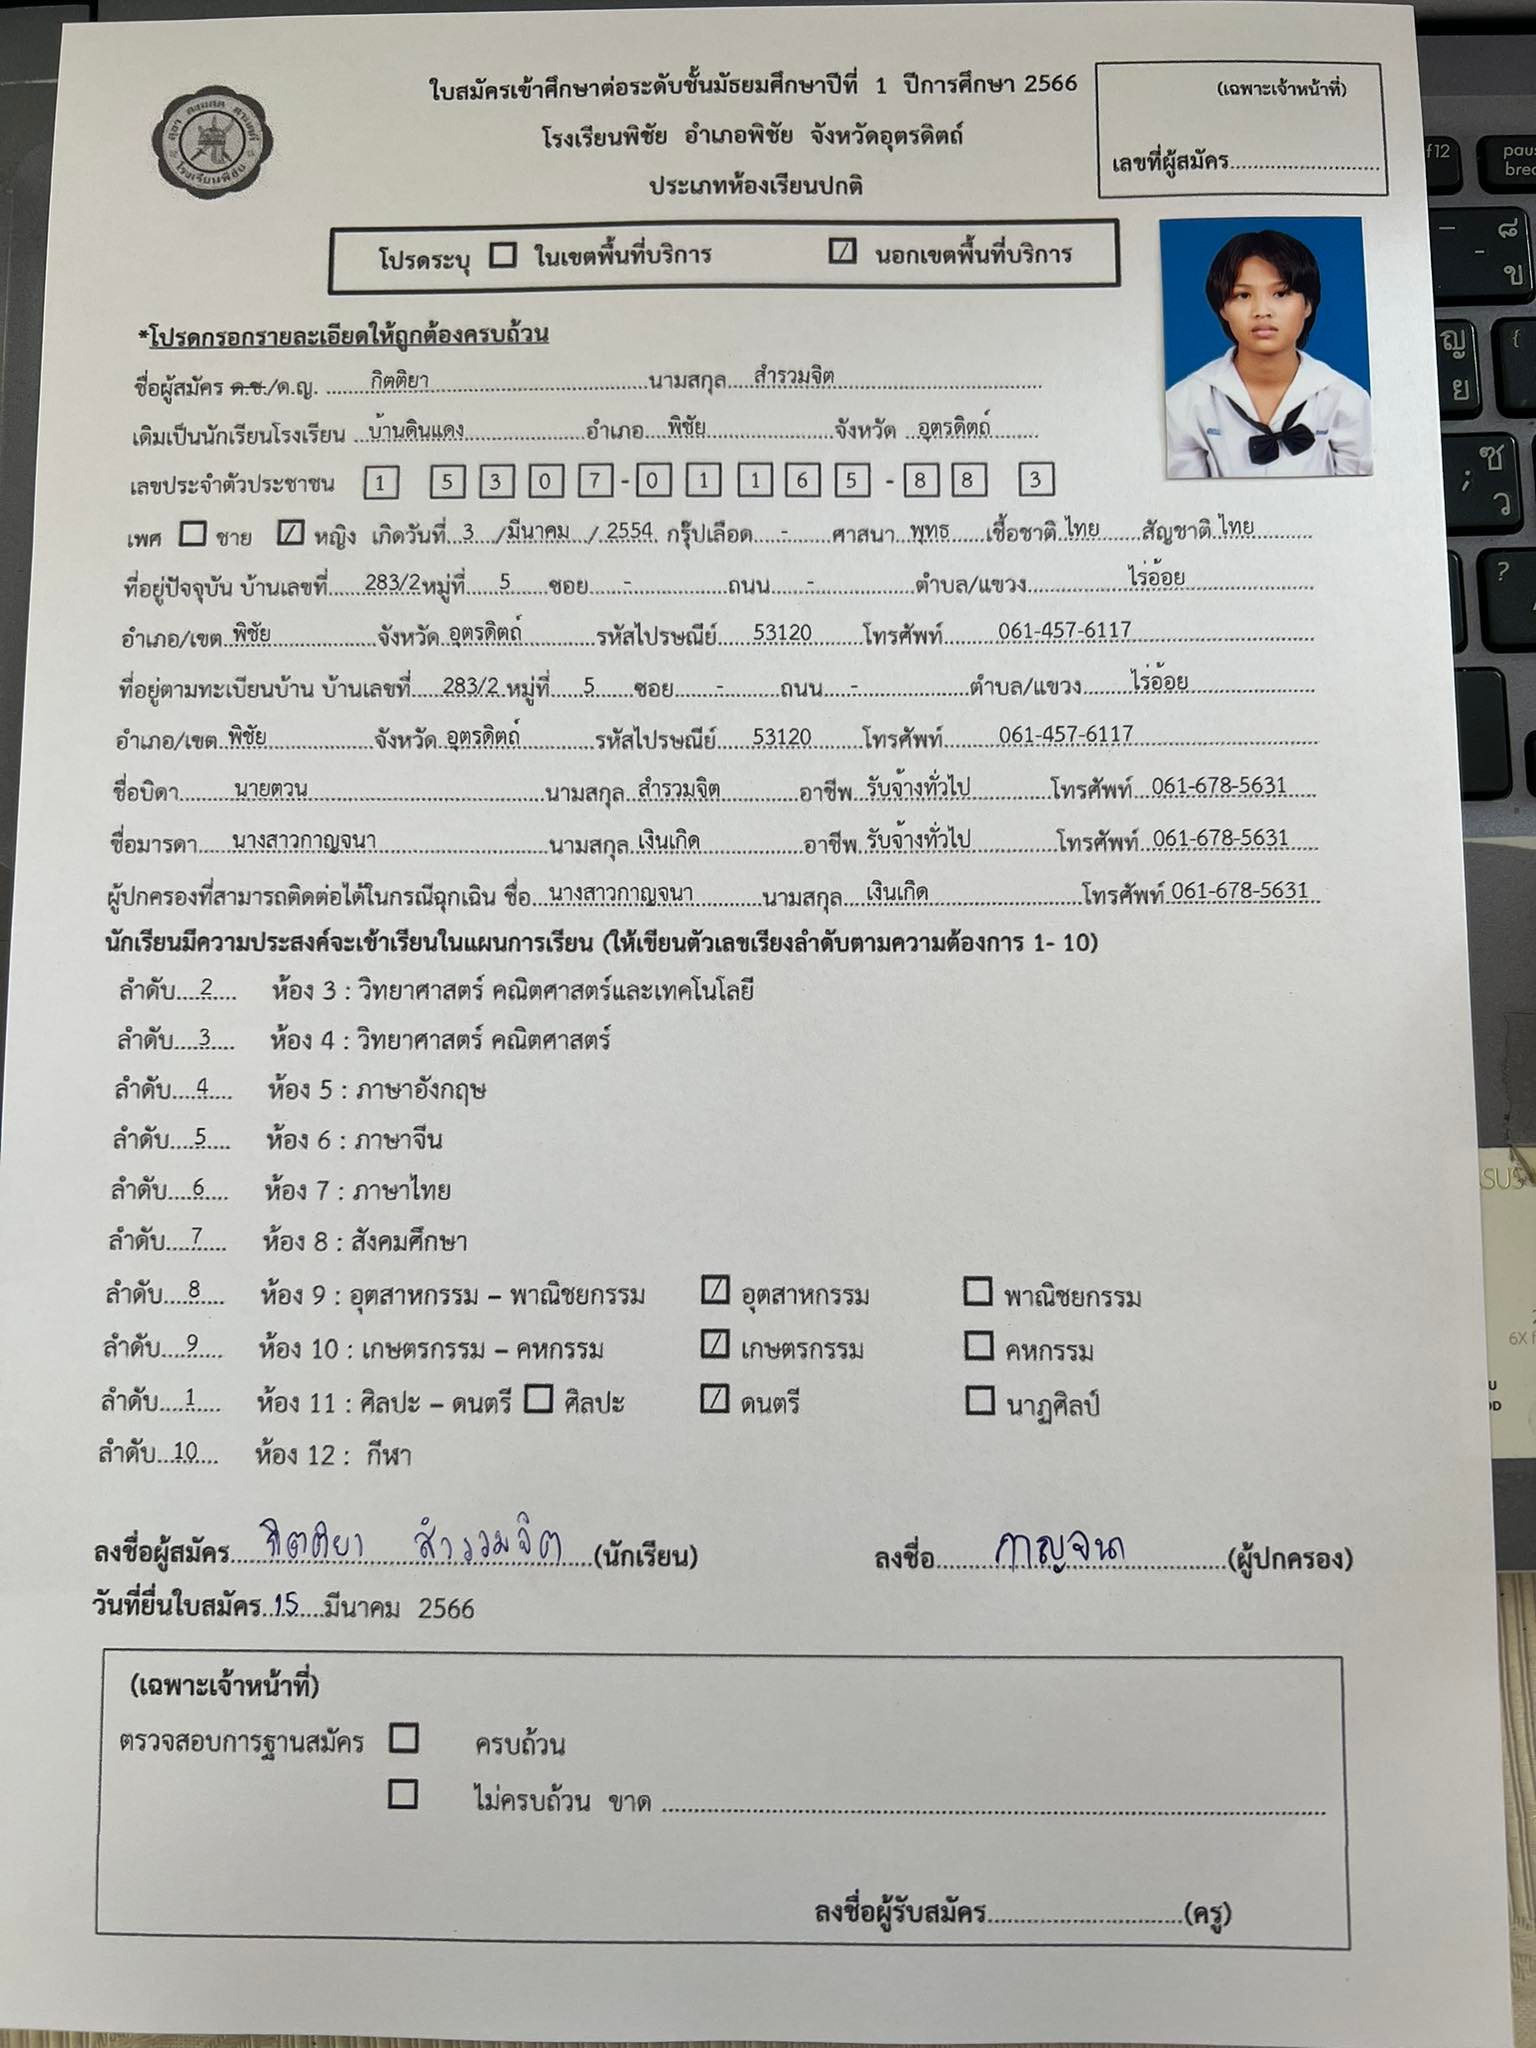 ใบสมัครเข้าศึกษาต่อระดับชั้นมัธยมศึกษาปีที่ 1 ปีการศึกษา 2566
(เฉพาะเจ้าหน้าที่)
โรงเรียนพิชัย อำเภอพิชัย จังหวัดอุตรดิตถ์
เลขที่ผู้สมัคร..........................
ประเภทห้องเรียนปกติ
โปรดระบุ ☐ ในเขตพื้นที่บริการ ☑ นอกเขตพื้นที่บริการ
*โปรดกรอกรายละเอียดให้ถูกต้องครบถ้วน
ชื่อผู้สมัคร ด.ช./ด.ญ. กิตติยา นามสกุล สำรวมจิต
เดิมเป็นนักเรียนโรงเรียน บ้านดินแดง อำเภอ พิชัย จังหวัด อุตรดิตถ์
เลขประจำตัวประชาชน 1 5 3 0 7 - 0 1 1 6 5 - 8 8 3
เพศ ☐ ชาย ☑ หญิง เกิดวันที่ 3 /มีนาคม / 2554 กรุ๊ปเลือด - ศาสนา พุทธ เชื้อชาติ ไทย สัญชาติ ไทย
ที่อยู่ปัจจุบัน บ้านเลขที่ 283/2 หมู่ที่ 5 ซอย - ถนน - ตำบล/แขวง ไร่อ้อย
อำเภอ/เขต พิชัย จังหวัด อุตรดิตถ์ รหัสไปรษณีย์ 53120 โทรศัพท์ 061-457-6117
ที่อยู่ตามทะเบียนบ้าน บ้านเลขที่ 283/2 หมู่ที่ 5 ซอย - ถนน - ตำบล/แขวง ไร่อ้อย
อำเภอ/เขต พิชัย จังหวัด อุตรดิตถ์ รหัสไปรษณีย์ 53120 โทรศัพท์ 061-457-6117
ชื่อบิดา นายตวน นามสกุล สำรวมจิต อาชีพ รับจ้างทั่วไป โทรศัพท์ 061-678-5631
ชื่อมารดา นางสาวกาญจนา นามสกุล เงินเกิด อาชีพ รับจ้างทั่วไป โทรศัพท์ 061-678-5631
ผู้ปกครองที่สามารถติดต่อได้ในกรณีฉุกเฉิน ชื่อ นางสาวกาญจนา นามสกุล เงินเกิด โทรศัพท์ 061-678-5631
นักเรียนมีความประสงค์จะเข้าเรียนในแผนการเรียน (ให้เขียนตัวเลขเรียงลำดับตามความต้องการ 1- 10)
ลำดับ 2 ห้อง 3 : วิทยาศาสตร์ คณิตศาสตร์และเทคโนโลยี
ลำดับ 3 ห้อง 4 : วิทยาศาสตร์ คณิตศาสตร์
ลำดับ 4 ห้อง 5 : ภาษาอังกฤษ
ลำดับ 5 ห้อง 6 : ภาษาจีน
ลำดับ 6 ห้อง 7 : ภาษาไทย
ลำดับ 7 ห้อง 8 : สังคมศึกษา
ลำดับ 8 ห้อง 9 : อุตสาหกรรม – พาณิชยกรรม ☑ อุตสาหกรรม ☐ พาณิชยกรรม
ลำดับ 9 ห้อง 10 : เกษตรกรรม – คหกรรม ☑ เกษตรกรรม ☐ คหกรรม
ลำดับ 1 ห้อง 11 : ศิลปะ – ดนตรี ☐ ศิลปะ ☑ ดนตรี ☐ นาฏศิลป์
ลำดับ 10 ห้อง 12 : กีฬา
ลงชื่อผู้สมัคร กิตติยา สำรวมจิต (นักเรียน) ลงชื่อ กาญจนา (ผู้ปกครอง)
วันที่ยื่นใบสมัคร 15 มีนาคม 2566
(เฉพาะเจ้าหน้าที่)
ตรวจสอบการฐานสมัคร ☐ ครบถ้วน
☐ ไม่ครบถ้วน ขาด
ลงชื่อผู้รับสมัคร..........................(ครู)